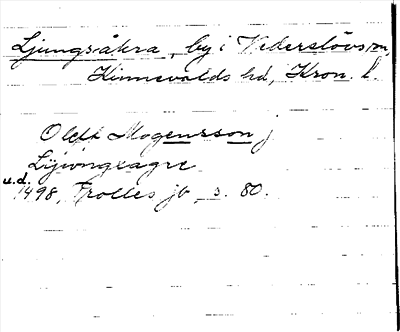 Ljungsåkra, by i Vederslövs sn,
Kinnevalds hd, Kron. l.
Oleff Mogensson j
Lijwngxagre
u.d.
1498, Trolles jb, s. 80.